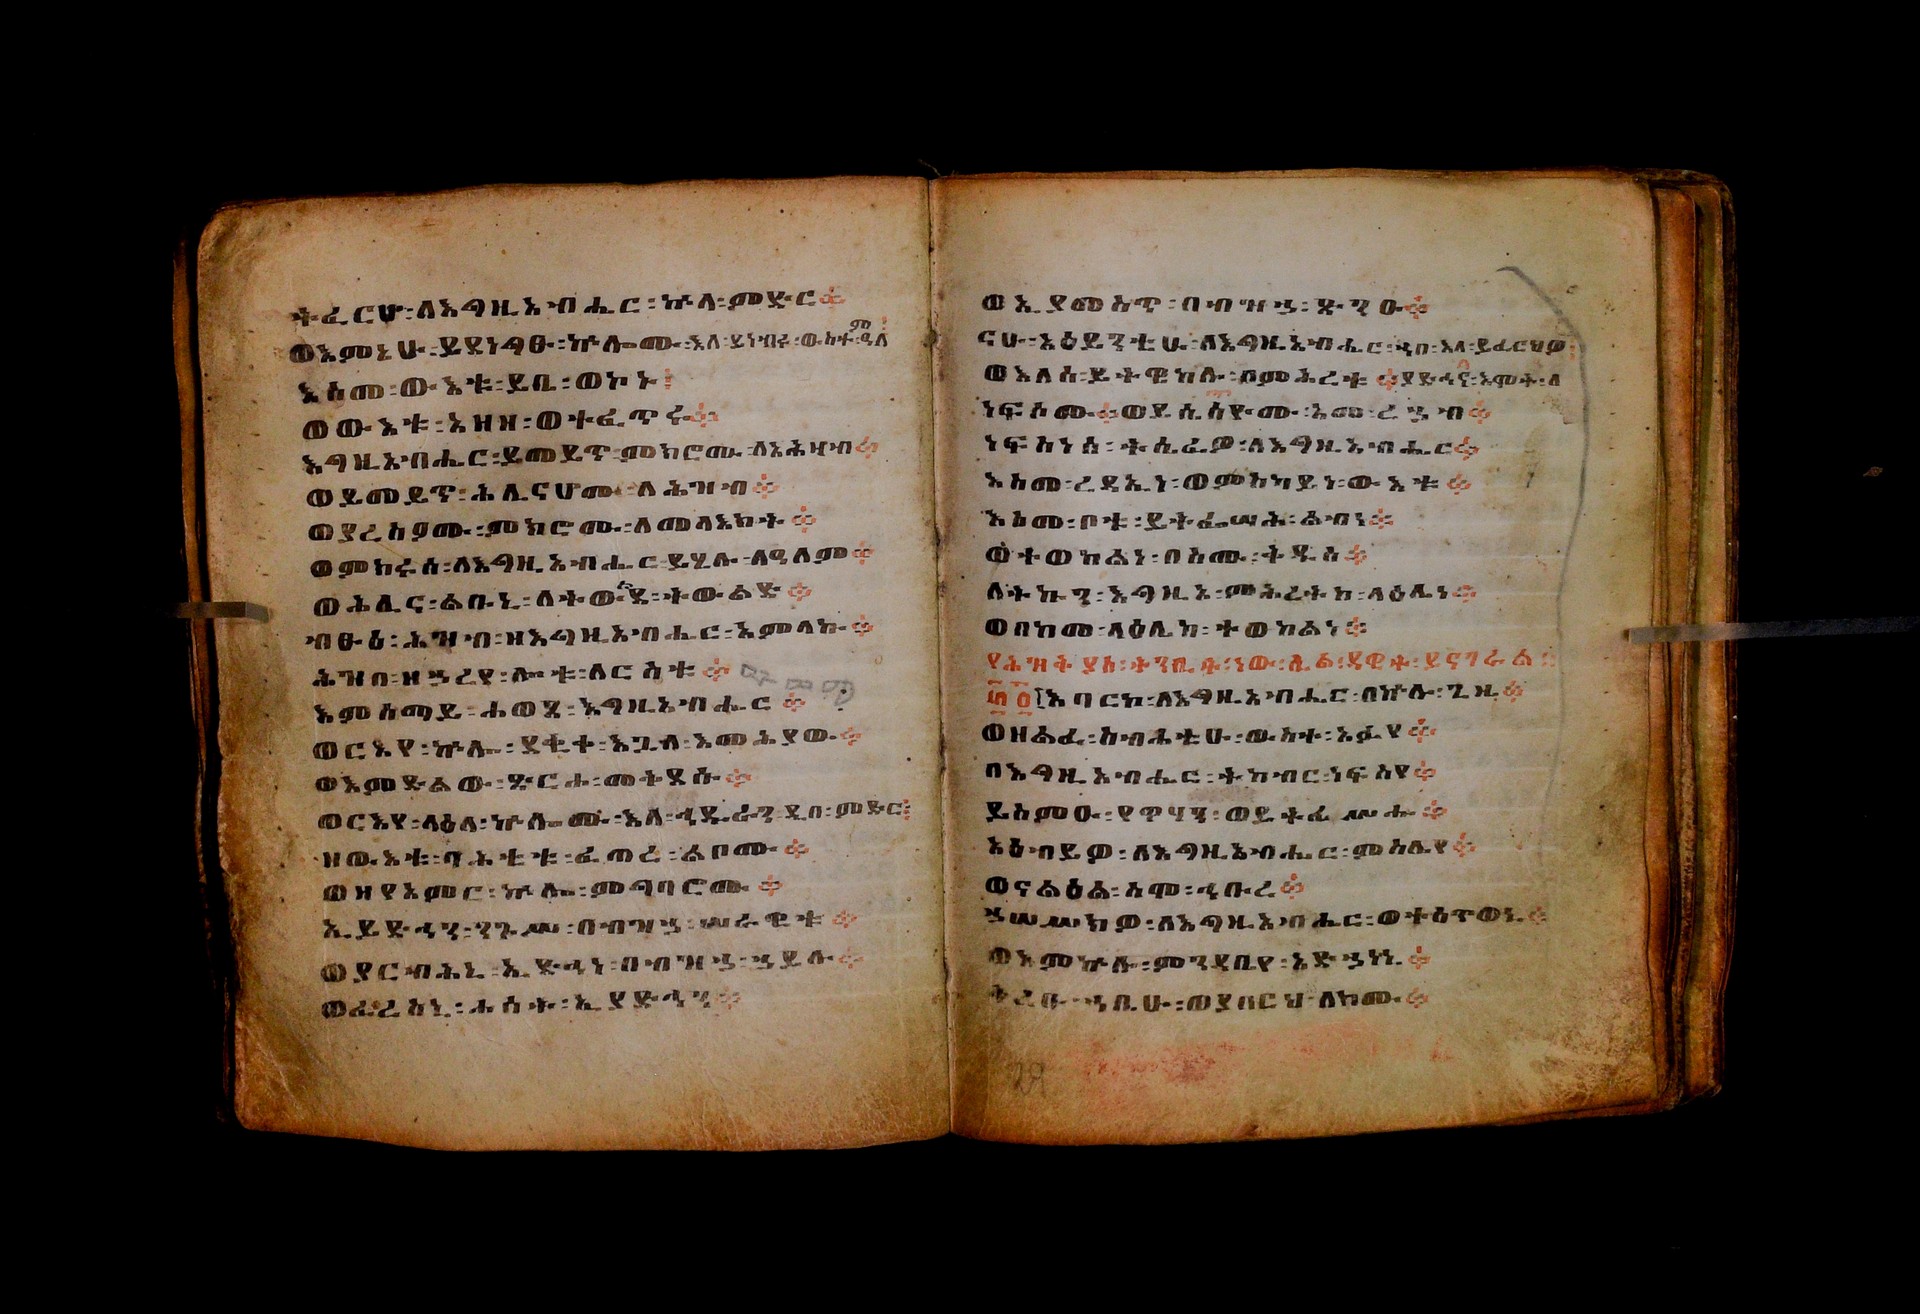 ትፈርሆ፡ለእግዚአብሔር፡ኵላ፡ምድር።
ወእምኔሁ፡ይደነግፁ፡ኵሎሙ፡እለ፡ይነብሩ፡ውስተ፡ዓለም።
እስመ፡ውእቱ፡ይቤ፡ወኮኑ።
ወውእቱ፡አዘዘ፡ወተፈጥሩ።
እግዚአብሔር፡ይመይጥ፡ምክሮሙ፡ለአሕዛብ።
ወይመይጥ፡ሕሊናሆሙ፡ለሕዝብ።
ወያረስዖሙ፡ምክሮሙ፡ለመላእክት።
ወምክሩሰ፡ለእግዚአብሔር፡ይሄሉ፡ለዓለም።
ወሕሊና፡ልቡኒ፡ለትውልደ፡ትውልድ።
ብፁዕ፡ሕዝብ፡ዘእግዚአብሔር፡አምላኩ።
ሕዝብ፡ዘኀረየ፡ሎቱ፡ለርስቱ።
እምሰማይ፡ሐወጸ፡እግዚአብሔር።
ወርእየ፡ኵሎ፡ደቂቀ፡እጓለ፡እመሕያው።
ወእምድልው፡ጽርሐ፡መቅደሱ።
ወርእየ፡ላዕለ፡ኵሎሙ፡እለ፡ኅዱራን፡ዲበ፡ምድር።
ዘውእቱ፡ባሕቲቱ፡ፈጠረ፡ልቦሙ።
ወዘያአምር፡ኵሎ፡ምግባሮሙ።
ኢይድኅን፡ንጉሥ፡በብዝኀ፡ሠራዊቱ።
ወያርብሕኒ፡ኢድኅነ፡በብዝኀ፡ኀይሉ።
ወፈረስኒ፡ሐሰት፡ኢያድኅን።
ወኢያመስጥ፡በብዝኀ፡ጽንዑ።
ናሁ፡አዕይንቲሁ፡ለእግዚአብሔር፡ኀበ፡እለ፡ይፈርህዎ።
ወእለሰ፡ይትዌከሉ፡በምሕረቱ።ያድኅና፡እሞት፡ለ
ነፍሶሙ።ወይሴስዮሙ፡አመ፡ረኀብ።
ነፍስነሰ፡ትሴፈዎ፡ለእግዚአብሔር።
እስመ፡ረዳኢነ፡ወምስካይነ፡ውእቱ።
እስመ፡ቦቱ፡ይትፌሣሕ፡ልብነ።
ወተወከልነ፡በስሙ፡ቅዱስ።
ለትኩን፡እግዚኦ፡ምሕረትከ፡ላዕሌነ።
ወበከመ፡ላዕሌከ፡ተወከልነ።
እባርኮ፡ለእግዚአብሔር፡በኵሉ፡ጊዜ።
ወዘልፈ፡ስብሐቲሁ፡ውስተ፡አፉየ።
በእግዚአብሔር፡ትከብር፡ነፍስየ።
ይስምዑ፡የዋሃን፡ወይትፈሥሑ።
አዕብይዎ፡ለእግዚአብሔር፡ምስሌየ።
ወናልዕል፡ስሞ፡ኅቡረ።
ኀሠሥክዎ፡ለእግዚአብሔር፡ወተሰጥወኒ።
ወእምኵሉ፡ምንዳቤየ፡አድኀነኒ።
ቅረቡ፡ኀቤሁ፡ወያበርህ፡ለክሙ።